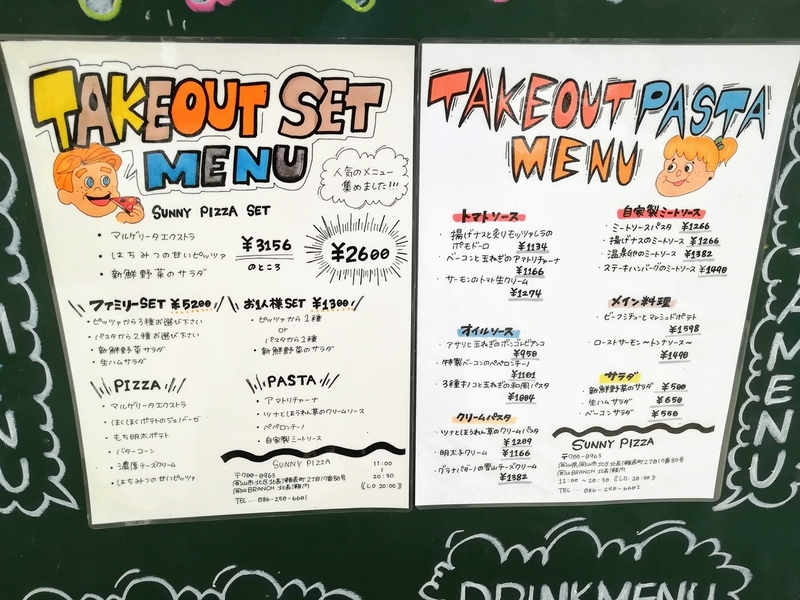 TAKEOUT SET
MENU
人気のメニュー
集めました!!!
SUNNY PIZZA SET
・マルゲリータエクストラ
・はちみつの甘いピッツァ
・新鮮野菜のサラダ
¥3156
のところ
¥2600
ファミリーSET ¥5200
・ピッツァから3種お選び下さい
・パスタから2種お選び下さい
・新鮮野菜サラダ
・生ハムサラダ
お1人様SET ¥1300
・ピッツァから1種
or
パスタから1種
・新鮮野菜のサラダ
PIZZA
・マルゲリータエクストラ
・ほくほくポテトのジェノバーゼ
・もち明太ポテト
・バターコーン
・濃厚チーズクリーム
・はちみつの甘いピッツァ
PASTA
・アマトリチャーナ
・ツナとほうれん草のクリームソース
・ペペロンチーノ
・自家製ミートソース
SUNNY PIZZA
〒700-0963
岡山市北区北長瀬表町2丁目17番80号
岡山BRANCH 北長瀬内
TEL... 086-250-6601
11:00
20:30
(LO 20:00)
TAKEOUT PASTA
MENU
トマトソース
・揚げナスと炙りモッツァレラの
ポモドーロ ¥1134
・ベーコンと玉ねぎのアマトリチャーナ
¥1166
・サーモンのトマト生クリーム
¥1274
オイルソース
・アサリと玉ねぎのボンゴレビアンコ
¥950
・特製ベーコンのペペロンチーノ
¥1101
・3種キノコと玉ねぎの和風パスタ
¥1004
クリームパスタ
・ツナとほうれん草のクリームパスタ
¥1209
・明太子クリーム ¥1166
・グラナパダーノの雪山チーズクリーム
¥1382
自家製ミートソース
・ミートソースパスタ ¥1266
・揚げナスのミートソース ¥1266
・温泉卵のミートソース ¥1382
・ステーキハンバーグのミートソース ¥1490
メイン料理
・ビーフシチューとマッシュドポテト
¥1598
・ローストサーモン〜トンナソース〜
¥1490
サラダ
・新鮮野菜のサラダ ¥500
・生ハムサラダ ¥650
・ベーコンサラダ ¥550
SUNNY PIZZA
〒700-0963
岡山県岡山市北区北長瀬表町2丁目17番80号
岡山BRANCH 北長瀬内
11:00〜20:30 (LO 20:00)
TEL... 086-250-6601
DRINK MENU